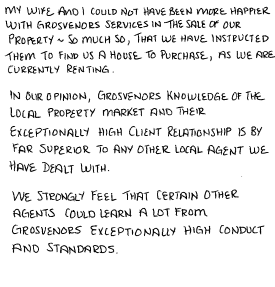 MY WIFE AND I COULD NOT HAVE BEEN MORE HAPPIER
WITH GROSVENORS SERVICES IN THE SALE OF OUR
PROPERTY ~ SO MUCH SO, THAT WE HAVE INSTRUCTED
THEM TO FIND US A HOUSE TO PURCHASE, AS WE ARE
CURRENTLY RENTING.
IN OUR OPINION, GROSVENORS KNOWLEDGE OF THE
LOCAL PROPERTY MARKET AND THEIR
EXCEPTIONALLY HIGH CLIENT RELATIONSHIP IS BY
FAR SUPERIOR TO ANY OTHER LOCAL AGENT WE
HAVE DEALT WITH.
WE STRONGLY FEEL THAT CERTAIN OTHER
AGENTS COULD LEARN A LOT FROM
GROSVENORS EXCEPTIONALLY HIGH CONDUCT
AND STANDARDS.